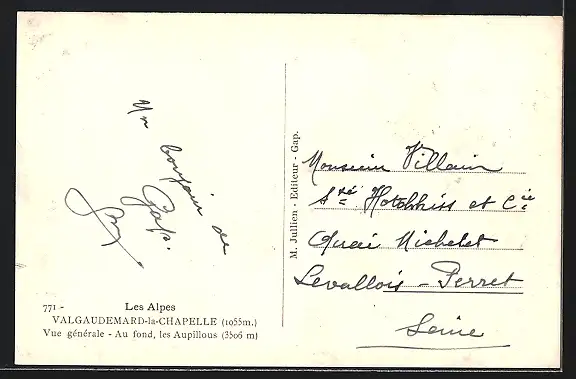 Un bonjour de
Gap.
771 -
Les Alpes
VALGAUDEMARD-la-CHAPELLE (1055m.)
Vue générale - Au fond, les Aupillous (3506 m)
M. Jullien - Editeur - Gap.
Monsieur Villain
Sté Hotchkiss et Cie
Quai Michelet
Levallois - Perret
Seine